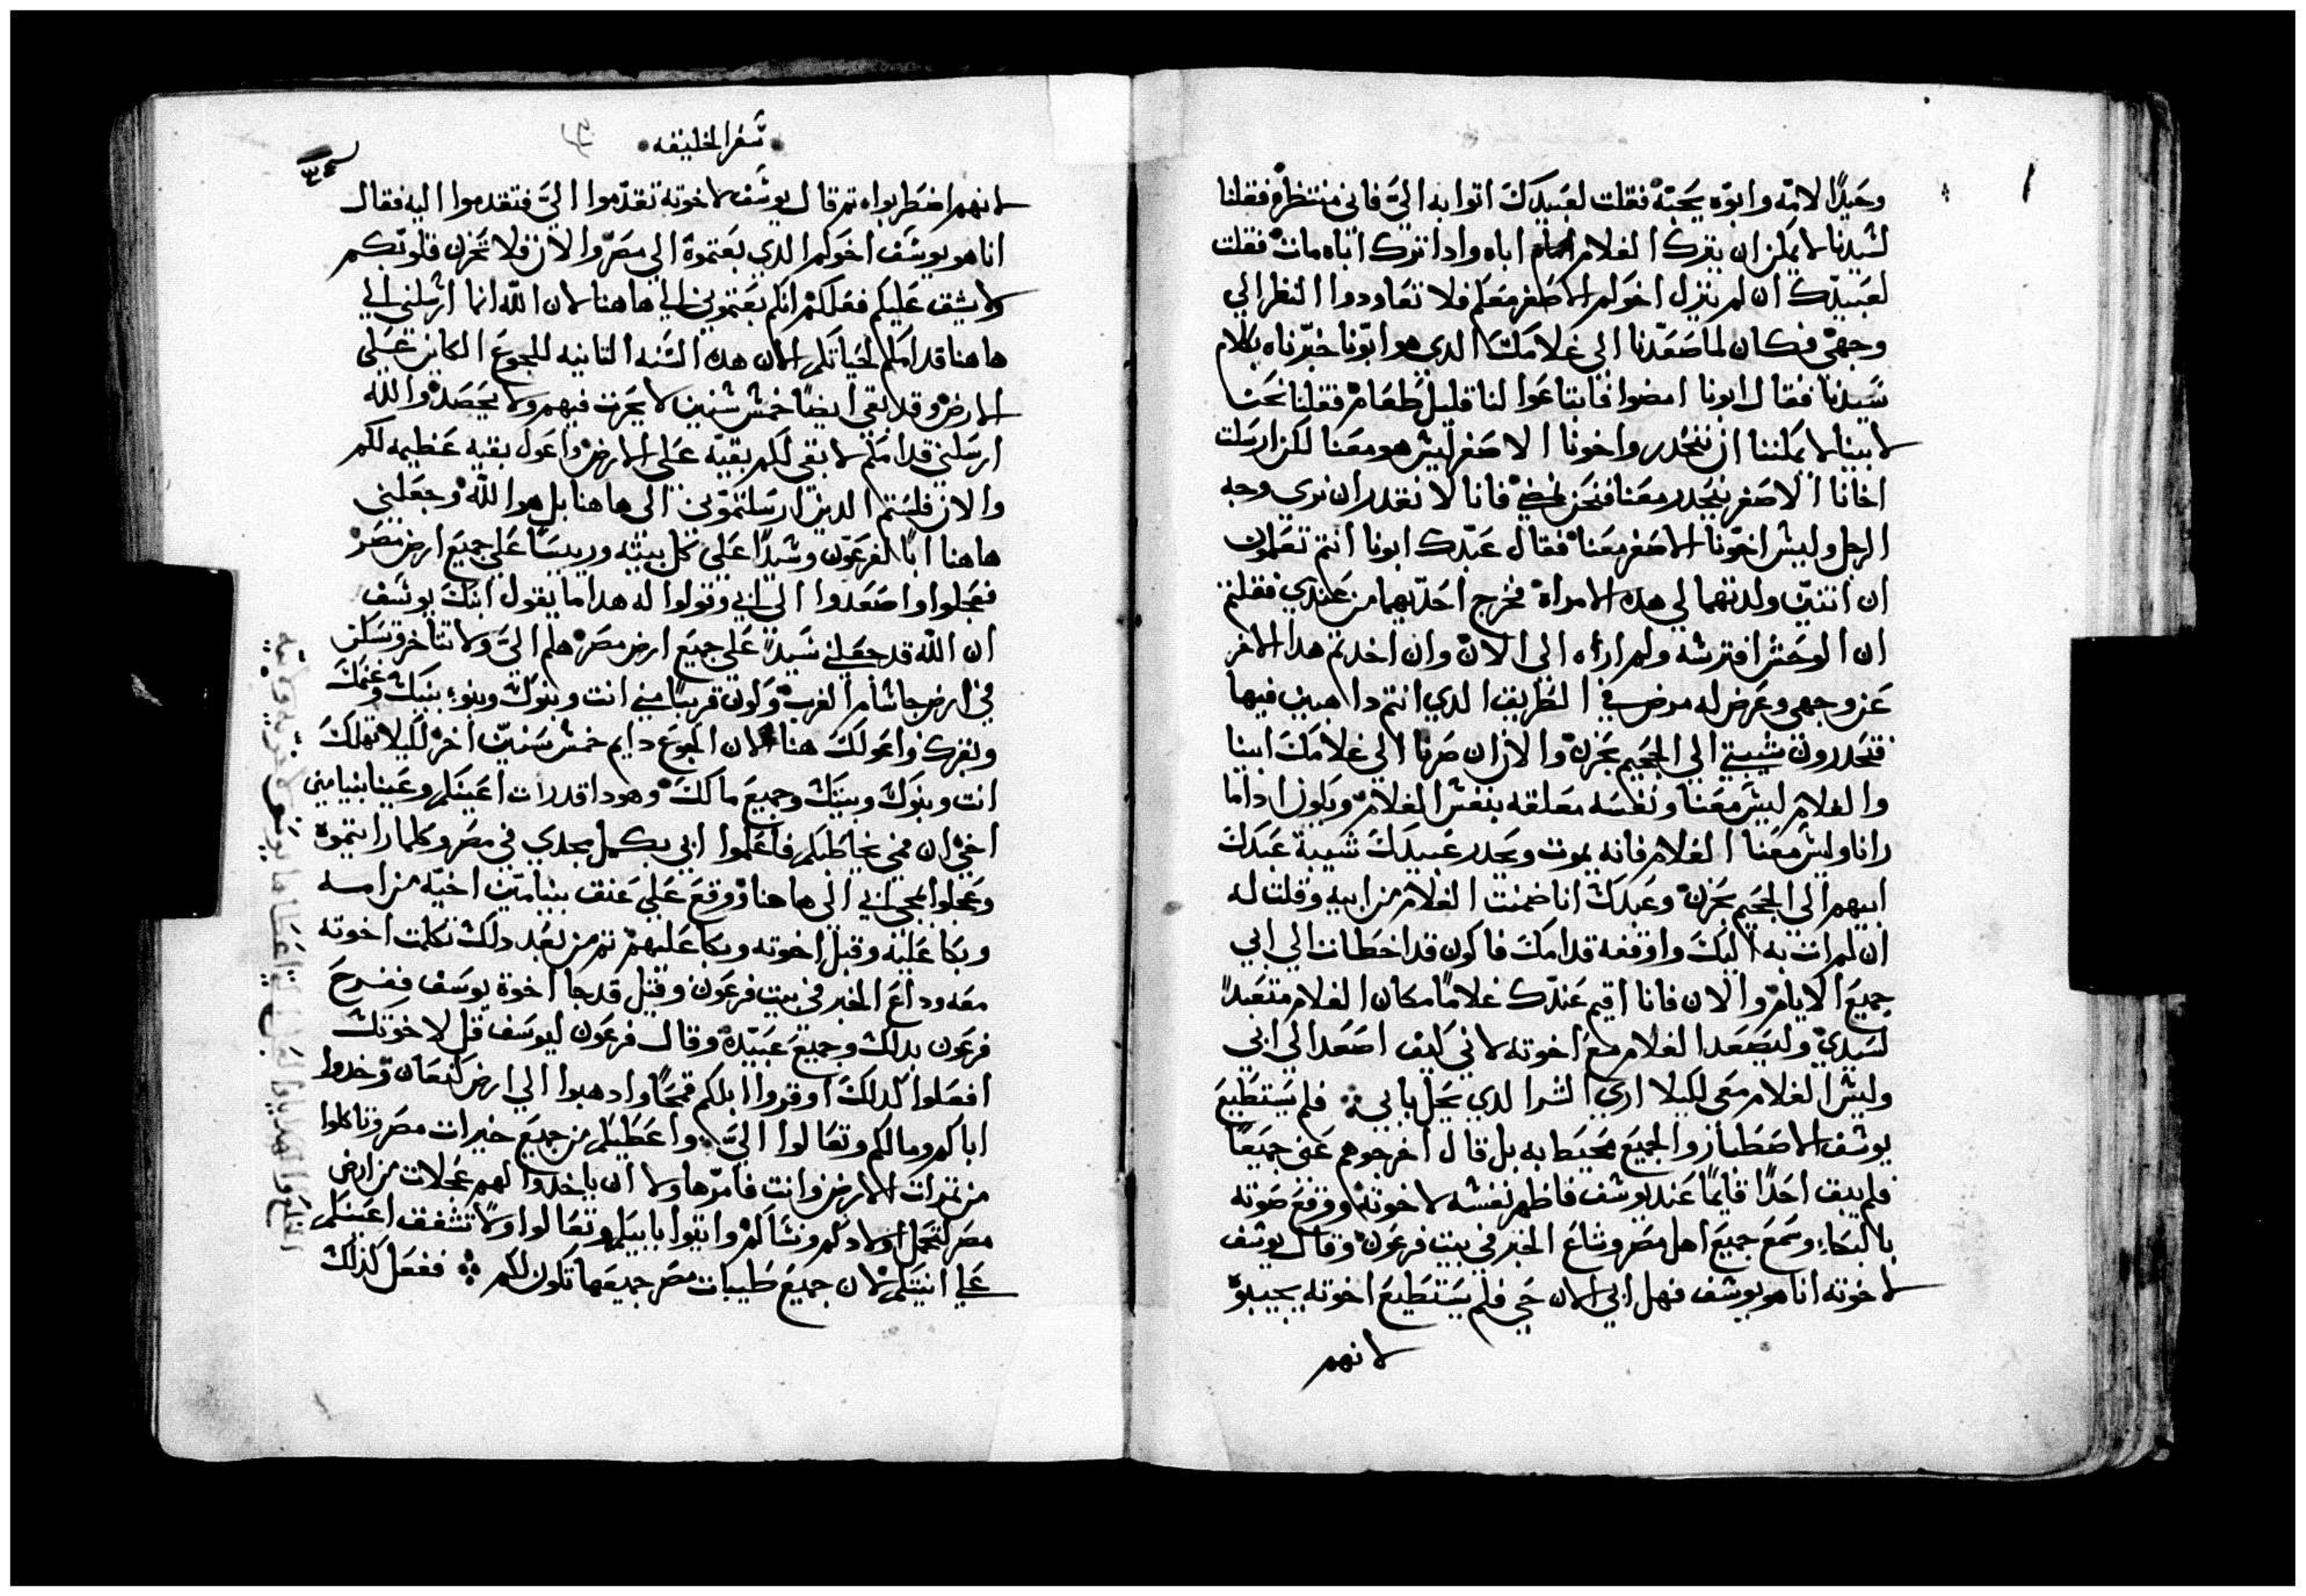 وحيدًا لامه وابوه يحبه فقلت لعبيدك اتوا به الي فاني منتظره فقلنا
لسيدنا لا يمكن ان يترك الغلام اباه وادا ترك اباه مات فقلت
لعبيدك ان لم ينزل اخوكم الاصغر معكم فلا تعاودوا النظر الي
وجهي فكان لما صعدنا الي غلامك الدي هو ابونا خبرناه بكلام
سيدنا فقال ابونا امضوا فابتاعوا لنا قليل طعام فقلنا نحن
لابينا لا يمكننا ان ننحدر واخونا الاصغر ليس هو معنا لكن ارسلت
اخانا الاصغر ينحدر معنا فنحن نمضي فانا لا نقدر ان نري وجه
الرجل وليس اخونا الاصغر معنا فقال عبدك ابونا انتم تعلمون
ان اتنين ولدتهما لي هده الامراه فخرج احدهما من عندي فقلتم
ان الوحش افترسه ولم اراه الي الان وان اخدتم هدا الاخر
عن وجهي وعرض له مرض في الطريق الدي انتم داهبين فيها
فتحدرون شيبتي الي الجحيم بحزن والان ان صرنا الي غلامك ابينا
والغلام ليس معنا ونفسه معلقه بنفس الغلام ويكون ادا ما
رانا وليس معنا الغلام فانه يموت ويحدر عبيدك شيبة عبدك
ابيهم الي الجحيم بحزن وعبدك انا ضمنت الغلام من ابيه وقلت له
ان لم ات به اليك واوقفه قدامك فاكون قد اخطات الي ابي
جميع الايام والان فانا اقيم عندك غلامًا مكان الغلام متعبدًا
لسيدي وليصعد الغلام مع اخوته لاني كيف اصعد الي ابي
وليس الغلام معي لكيلا اري الشر الدي يحل بابي فلم يستطيع
يوسف الاصطبار والجميع محيط به بل قال اخرجوهم عني جميعًا
فلم يبق احدًا قايمًا عند يوسف فاظهر نفسه لاخوته ورفع صوته
بالبكاء وسمع جميع اهل مصر وشاع الخبر في بيت فرعون وقال يوسف
لاخوته انا هو يوسف فهل ابي الان حي فلم يستطيع اخوته يجيبوه
لانهم
سفر الخليقه
لانهم اضطربوا تم قال يوسف لاخوته تقدموا الي فتقدموا اليه فقال
انا هو يوسف اخوكم الدي بعتموه الي مصر والان فلا تحزن قلوبكم
ولا يشق عليكم فعلكم انكم بعتموني الي هاهنا لان الله انما ارسلني الي
هاهنا قدامكم لحياتكم لان هده السنه التانيه للجوع الكاين علي
الارض وقد بقي ايضًا خمس سنين لا يحرت فيهم ولا يحصد والله
ارسلني قدامكم لابقي لكم بقيه علي الارض واعول بقيه عظيمه لكم
والان فلستم الدين ارسلتموني الي هاهنا بل هو الله وجعلني
هاهنا ابًا لفرعون وسيدًا علي كل بيته ورييسًا علي جميع ارض مصر
فعجلوا واصعدوا الي ابي وقولوا له هدا ما يقول ابنك يوسف
ان الله قد جعلني سيدًا علي جميع ارض مصر هلم الي ولا تتاخر وتسكن
في ارض جاشام الغرب وكون قريبًا مني انت وبنوك وبنوء بنيك وغنمك
وبقرك واعولك هنا لان الجوع دايم خمس سنين اخر لكيلا تهلك
انت وبنوك وبيتك وجميع مالك وهودا قد رات اعينكم وعينا بنيامين
اخي ان فمي يخاطبكم فاعلموا ابي بكل مجدي في مصر وكلما رايتموه
وعجلوا بمجي ابي الي هاهنا ووقع علي عنق بنيامين اخيه من امه
وبكا عليه وقبل اخوته وبكا عليهم تم من بعد دلك تكلمت اخوته
معه وداع الخبر في بيت فرعون وقيل قد جا اخوة يوسف ففرح
فرعون بدلك وجميع عبيده وقال فرعون ليوسف قل لاخوتك
افعلوا كدلك اوقروا ابلكم قمحًا وادهبوا الي ارض كنعان وخدوا
اباكم ومالكم وتعالوا الي واعطيكم من جميع خيرات مصر وتاكلوا
من تمرات الارض وانت فامر هاولا ان ياخدوا لهم عجلات من ارض
مصر لتحمل اولادكم ونساكم واتوا بابيكم وتعالوا ولا تشفق اعينكم
علي انيتكم لان جميع طيبات مصر جميعها تكون لكم ففعل كدلك